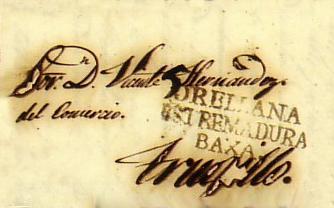 Sor. Dn. Vicente Hernandez.
del Comercio.
ORELLANA
ESTREMADURA
BAXA
Truxillo.